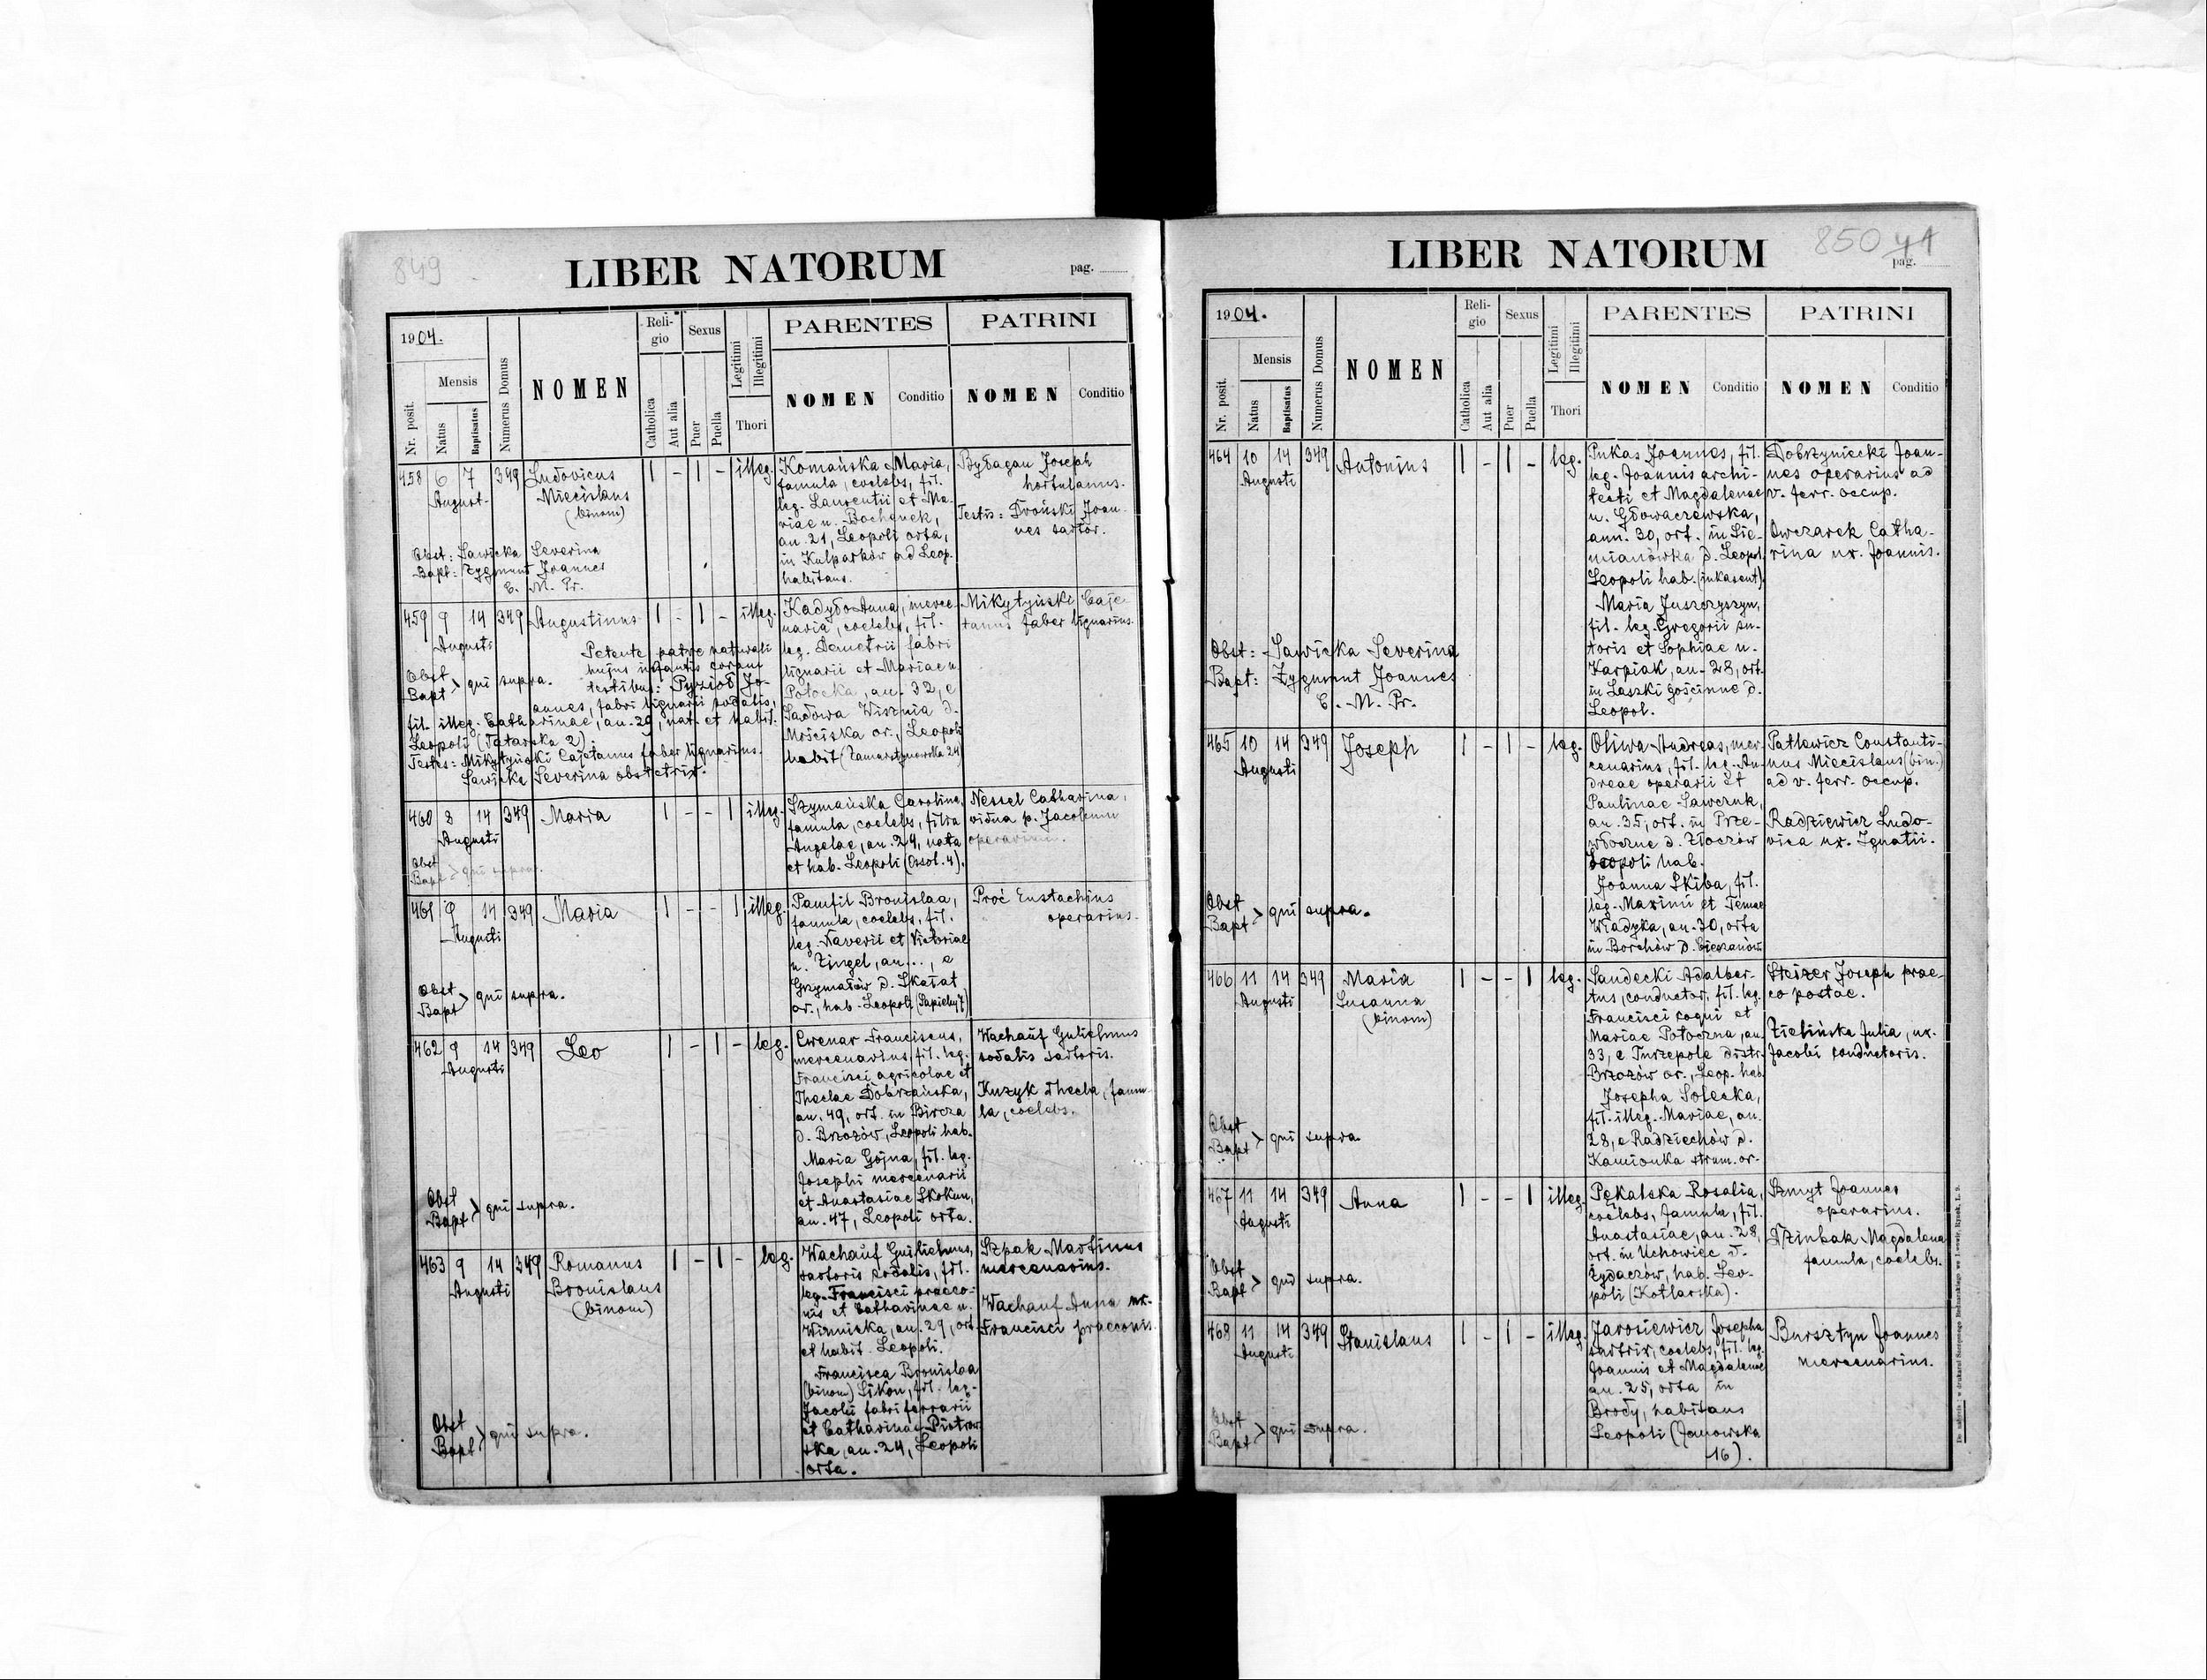 849
LIBER NATORUM
pag.
1904.
Mensis
Nr. posit.
Natus
Baptisatus
Numerus Domus
NOMEN
Reli-
gio
Catholica
Aut alia
Sexus
Puer
Puella
Legitimi
Illegitimi
Thori
PARENTES
NOMEN
Conditio
PATRINI
NOMEN
Conditio
458 6 7 349 Ludovicus 1 - 1 - illeg.
August.
Miecislaus
(binom)
Obst: Sawicka Severina
Bapt: Zygmunt Joannes
C. M. Pr.
Komańska Maria,
famula, coelebs, fil.
leg. Laurentii et Ma-
riae n. Bochanek,
an. 21, Leopoli orta,
in Kulparków ad Leop.
habitans.
Joseph
hortulanus.
Testis: Dwoński Joan-
nes sartor.
459 9 14 349 Augustinus 1 - 1 - illeg.
Augusti
Petente patre naturali
hujus infantis coram
testibus: Pyzioł Jo-
annes, fabri lignarii sodalis,
Obst
Bapt > qui supra.
fil. illeg. Catharinae, an. 29, nat. et habit.
Leopoli (Tatarska 2).
Testes: Mikytyński Cajetanus faber lignarius.
Sawicka Severina obstetrix.
Kadyło Anna, merce-
naria, coelebs, fil.
leg. Demetrii fabri
lignarii et Mariae n.
Potocka, an. 32, e
Sadowa Wisznia d.
Mościska or., Leopoli
habit (Zamarstynowska 24
Mikytyński Caje-
tanus faber lignarius.
460 8 14 349 Maria 1 - - 1 illeg.
Augusti
Obst
Bapt > qui supra.
Szymańska Carolina,
famula, coelebs, filia
Angelae, an. 24, nata
et hab. Leopoli (Ossol. 4).
Nessel Catharina,
vidua p. Jacobum
operarium.
461 9 14 349 Maria 1 - - 1 illeg.
Augusti
Obst
Bapt > qui supra.
Pamfil Bronislaa,
famula, coelebs, fil.
leg. Xaverii et Victoriae
n. Zingel, an..., e
Grzymałów d. Skałat
or., hab. Leopoli (Sapiehy 7)
Proć Eustachius
operarius.
462 9 14 349 Leo 1 - 1 - leg.
Augusti
Obst
Bapt > qui supra.
Cwenar Franciscus,
mercenarius, fil. leg.
Francisci agricolae et
Theclae Dobrzańska,
an. 49, ort. in Bircza
d. Brzozów, Leopoli hab.
Maria Gójna, fil. leg.
Josephi mercenarii
et Anastasiae Skokun,
an. 47, Leopoli orta.
Wachauf Gulielmus
sodalis sartoris.
Kuzyk Thecla, famu-
la, coelebs.
463 9 14 349 Romanus 1 - 1 - leg.
Augusti
Bronislaus
(binom)
Obst
Bapt > qui supra.
Wachauf Guilielmus,
sartoris sodalis, fil.
leg. Francisci praeco-
nis et Catharinae n.
Winnicka, an. 29, ort.
et habit. Leopoli.
Francisca Bronislaa
(binom) Sikon, fil. leg.
Jacobi fabri ferrarii
et Catharinae Piotrow-
ska, an. 24, Leopoli
orta.
Szpak Martinus
mercenarius.
Wachauf Anna ux.
Francisci praeconis.
850 41
LIBER NATORUM
pag.
1904.
Mensis
Nr. posit.
Natus
Baptisatus
Numerus Domus
NOMEN
Reli-
gio
Catholica
Aut alia
Sexus
Puer
Puella
Legitimi
Illegitimi
Thori
PARENTES
NOMEN
Conditio
PATRINI
NOMEN
Conditio
464 10 14 349 Antonius 1 - 1 - leg.
Augusti
Obst: Sawicka Severina
Bapt: Zygmunt Joannes
C. M. Pr.
Pukas Joannes, fil.
leg. Joannis archi-
tecti et Magdalenae
n. Głowaczewska,
ann. 30, ort. in Sie-
mianówka d. Leopol.
Leopoli hab. (inkasent)
Maria Juszczyszyn,
fil. leg. Gregorii su-
toris et Sophiae n.
Karpiak, an. 28, ort.
in Laszki gościnne d.
Leopol.
Dobrzyniecki Joan-
nes operarius ad
v. ferr. occup.
Owczarek Catha-
rina ux. Joannis.
465 10 14 349 Joseph 1 - 1 - leg.
Augusti
Obst
Bapt > qui supra.
Oliwa Andreas, mer-
cenarius, fil. leg. An-
dreae operarii et
Paulinae Sawczuk,
an. 35, ort. in Prze-
włoczne d. Złoczów
Leopoli hab.
Joanna Skiba, fil.
leg. Maximi et Teniae
Władyka, an. 30, orta
in Borchów d. Cieszanów
Patkewicz Constanti-
nus Miecislaus (bin.)
ad v. ferr. occup.
Radziewicz Ludo-
vica ux. Ignatii.
466 11 14 349 Maria 1 - - 1 leg.
Augusti
Susanna
(binom)
Obst
Bapt > qui supra.
Sandecki Adalber-
tus, conductor, fil. leg.
Francisci coqui et
Mariae Potoczna, an.
33, e Turzepole distr.
Brzozów or., Leop. hab.
Josepha Solecka,
fil. illeg. Mariae, an.
28, e Radziechów d.
Kamionka strum. or.
Steizer Joseph prae-
co postae.
Zielińska Julia, ux.
Jacobi conductoris.
467 11 14 349 Anna 1 - - 1 illeg.
Augusti
Obst
Bapt > qui supra.
Pękalska Rosalia,
coelebs, famula, fil.
Anastasiae, an. 28,
ort. in Uchowiec d.
Żydaczów, hab. Leo-
poli (Kotlarska).
Szmyt Joannes
operarius.
Dzinbak Magdalena
famula, coelebs.
468 11 14 349 Stanislaus 1 - 1 - illeg.
Augusti
Obst
Bapt > qui supra.
Jarosiewicz Josepha
sartrix, coelebs, fil. leg.
Joannis et Magdalenae
an. 25, orta in
Brody, habitans
Leopoli (Janowska
16).
Bursztyn Joannes
mercenarius.